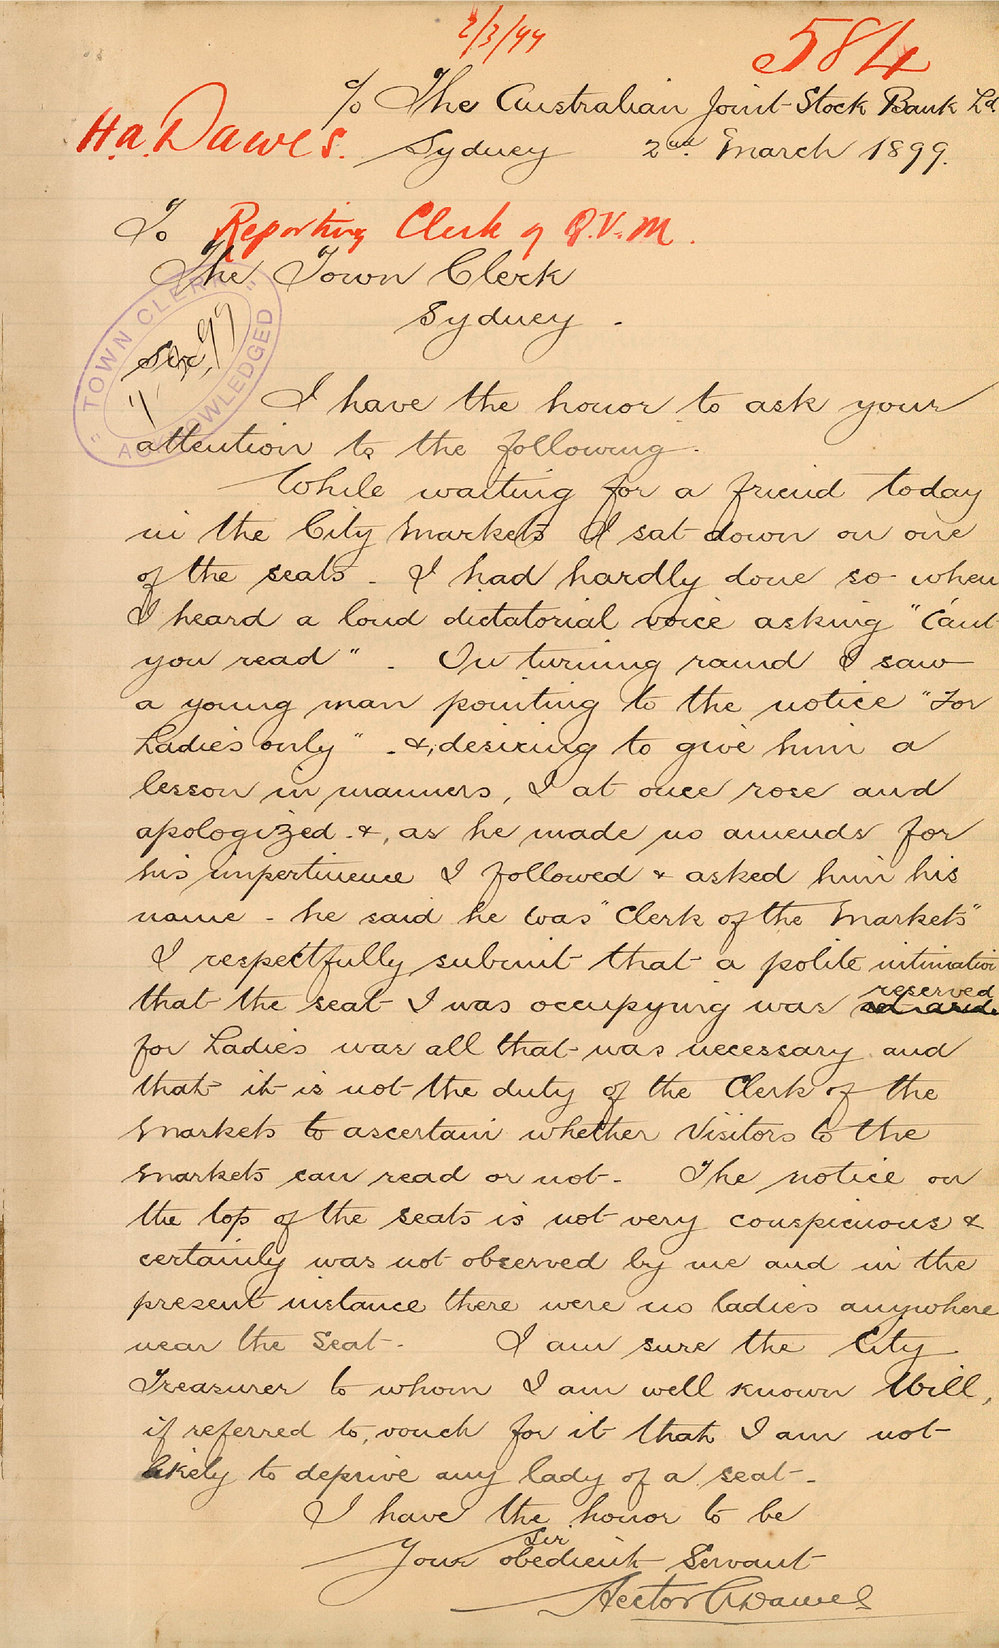 2/3/99
584
c/o The Australian Joint Stock Bank Ld.
H.A. Dawes.
Sydney 2nd. March 1899.
To Reporting Clerk of Q.V.M.
The Town Clerk
Sydney.
"TOWN CLERK" ACKNOWLEDGED
99
I have the honor to ask your
attention to the following.
While waiting for a friend today
in the City Markets I sat down on one
of the seats - I had hardly done so when
I heard a loud dictatorial voice asking "Can't
you read". On turning round I saw
a young man pointing to the notice "For
Ladies only" - &, desiring to give him a
lesson in manners, I at once rose and
apologized - &, as he made no amends for
his impertinence I followed & asked him his
name - he said he was "Clerk of the Markets"
I respectfully submit that a polite intimation
that the seat I was occupying was reserved
for Ladies was all that was necessary and
that it is not the duty of the Clerk of the
Markets to ascertain whether Visitors to the
Markets can read or not. The notice on
the top of the seats is not very conspicuous &
certainly was not observed by me and in the
present instance there were no ladies anywhere
near the seat. I am sure the City
Treasurer to whom I am well known will,
if referred to, vouch for it that I am not
likely to deprive any lady of a seat.
I have the honor to be
Sir
Your obedient Servant
Hector A Dawes